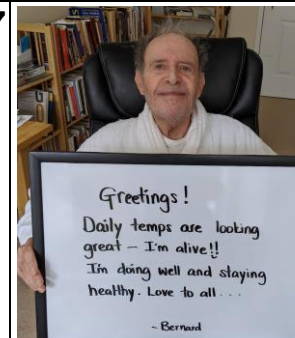 Greetings!
Daily temps are looking
great – I'm alive!!
I'm doing well and staying
healthy. Love to all...
- Bernard